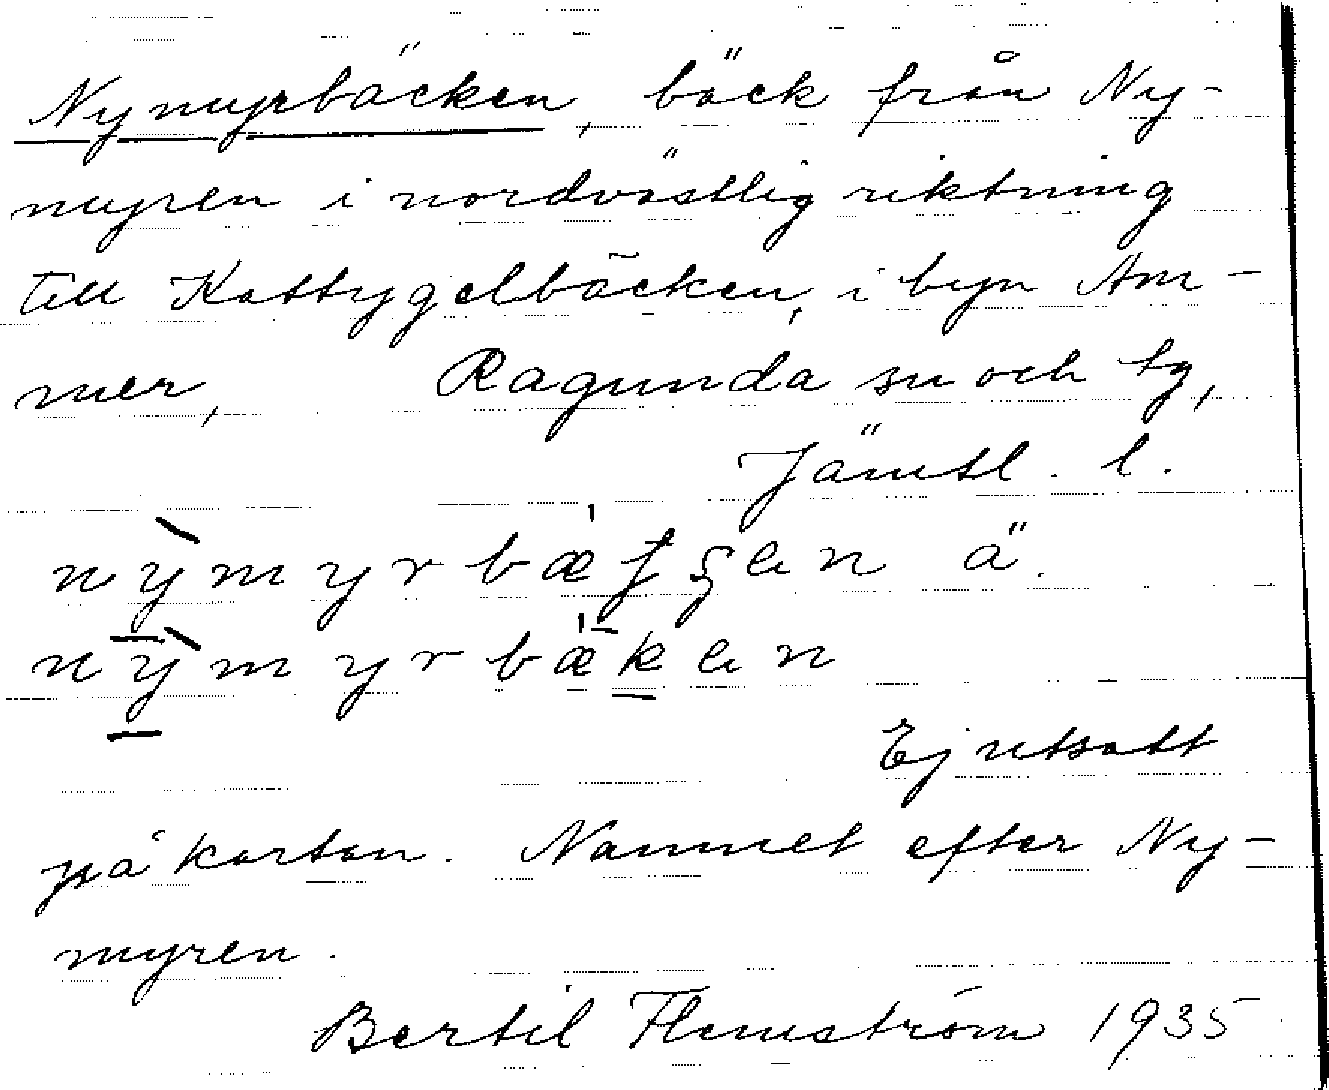 Nymyrbäcken, bäck från Ny-
myren i nordvästlig riktning
till Kottygelbäcken, i byn Am-
mer, Ragunda sn och tg,
Jämtl. l.
nỳmyrbæ̍ ä.
nỳmyrbæ̍ken
Ej utsatt
på kartan. Namnet efter Ny-
myren.
Bertil Flemström 1935